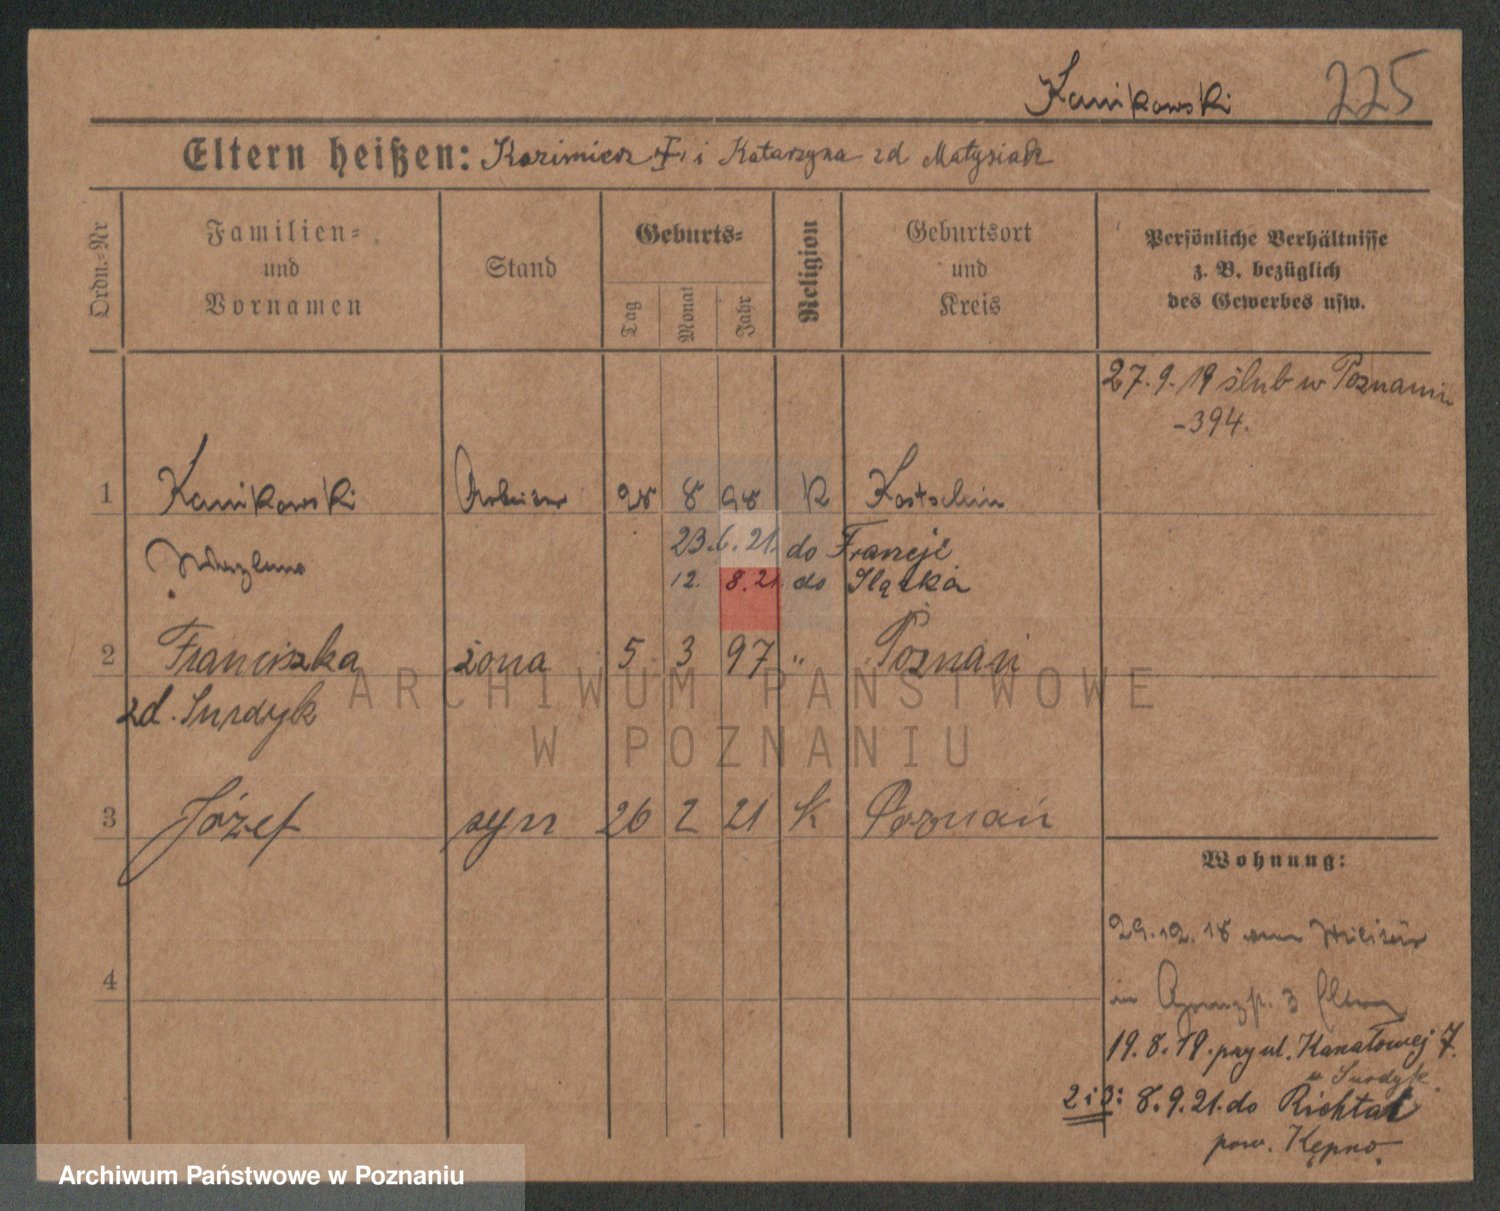 Kanikowski 225
Eltern heißen: Kazimierz I i Katarzyna zd Matysiak
Ordn.-Nr
Familien-
und
Vornamen
Stand
Geburts-
Tag
Monat
Jahr
Religion
Geburtsort
und
Kreis
Persönliche Verhältnisse
z. B. bezüglich
des Gewerbes usw.
27.9.19 ślub w Poznaniu
-394.
1 Kanikowski Arbeiter 28 8 98 K Kostschin
23.6.21. do Francji
12. 8.21. do Śląska
2 Franciszka żona 5 3 97 " Poznań
zd. Surdyk
ARCHIWUM PAŃSTWOWE
W POZNANIU
3 Józef syn 26 2 21 k Poznań
Wohnung:
29.12.18 vom Militär
4
in 3
19.8.19. przy ul. Kanałowej 7.
u Surdyk.
2 i 3: 8.9.21. do Richtal
pow. Kępno.
Archiwum Państwowe w Poznaniu